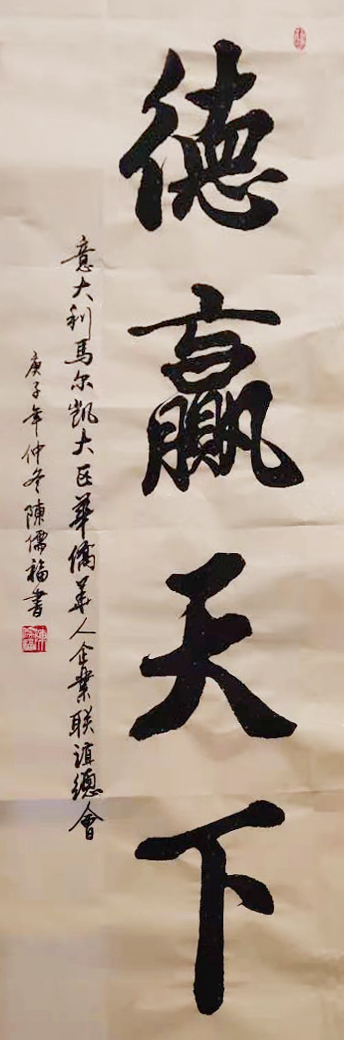 德赢天下
意大利馬尔凯大区華僑華人企業联谊總會
庚子年仲冬陳儒福書